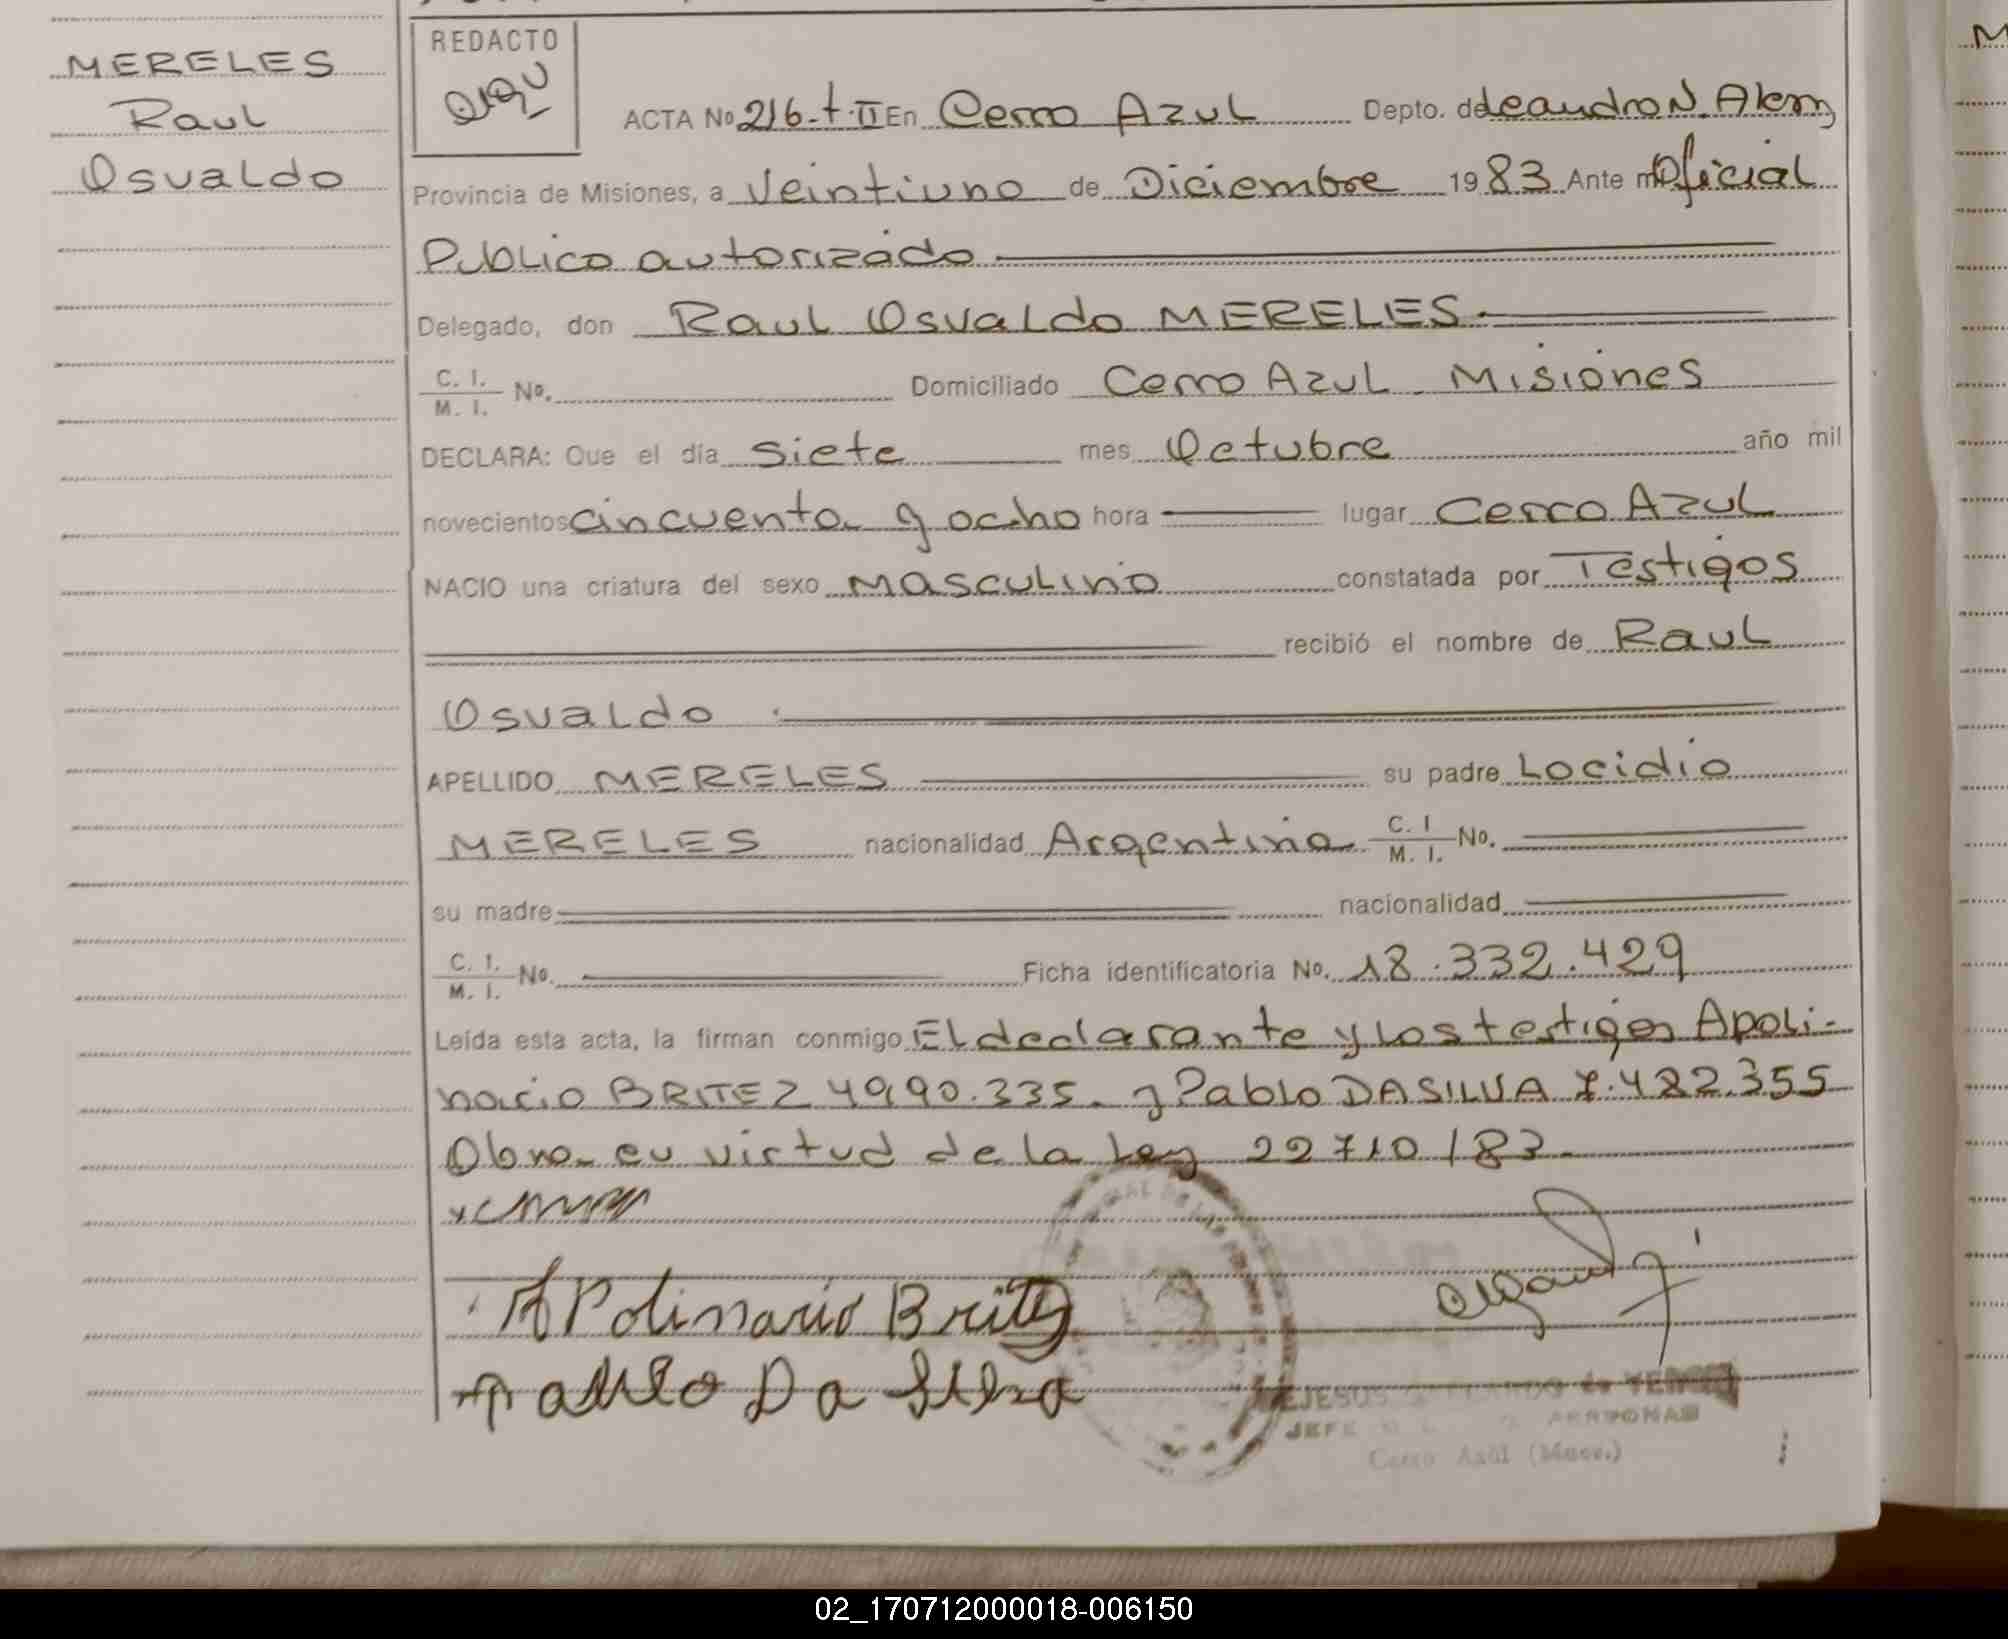 MERELES
Raul
Osvaldo
REDACTO
ACTA No 216-t.II En Cerro Azul Depto. de Leandro N. Alem
Provincia de Misiones, a Veintiuno de Diciembre 1983 Ante mí Oficial
Publico autorizado
Delegado, don Raul Osvaldo MERELES
C. I. / M. I. No. Domiciliado Cerro Azul Misiones
DECLARA: Que el día Siete mes Octubre año mil
novecientos cincuenta y ocho hora lugar Cerro Azul
NACIO una criatura del sexo Masculino constatada por Testigos
recibió el nombre de Raul
Osvaldo
APELLIDO MERELES su padre Locidio
MERELES nacionalidad Argentina C. I / M. I. No.
su madre nacionalidad
C. I. / M. I. No. Ficha identificatoria No. 18.332.429
Leída esta acta, la firman conmigo El declarante y los testigos Apoli-
nario BRITEZ 4990.335. y Pablo DA SILVA 7.482.355
Obra en virtud de la Ley 22710/83.
Apolinario Britez
Pablo Da Silva
JESUS de
JEFE PERSONAS
Cerro Azul (Mnes.)
M
02_170712000018-006150